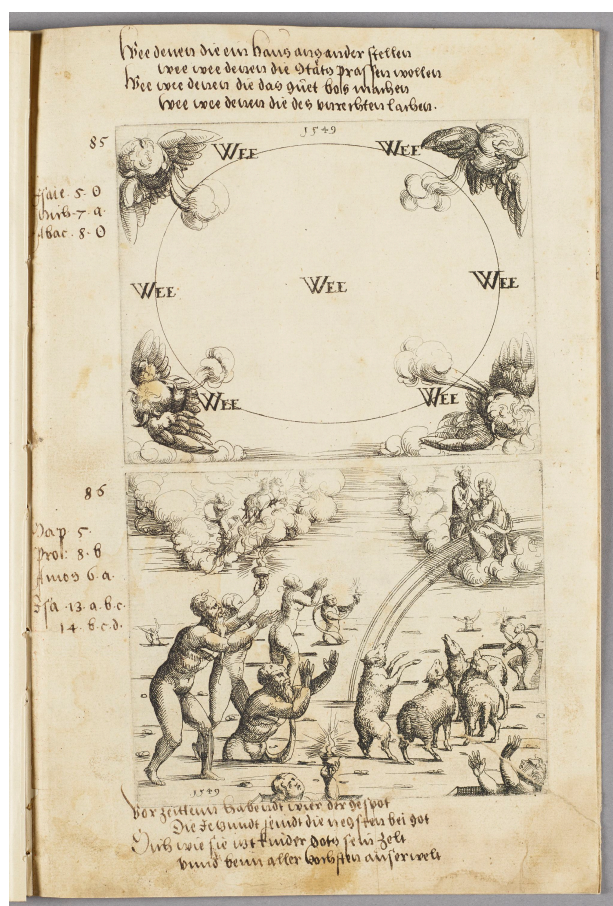 Wee denen die ein Haus ans ander stellen
wee wee denen die stäts prassen wollen
Wee wee denen die das guet bös machen
wee wee denen die des unrechten lachen.
1549
85
WEE WEE
Esaie. 5. 
7. a.
Abac. 8.
WEE WEE WEE
WEE WEE
86
Sap 5.
Pro: 8. b
Amos 6. a.
Esa. 13. a. b. c.
14. b. c. d.
1549
Vor zeittenn habendt wier der gespot
Die Jetzundt seindt die negsten bei got
Sich wie sie ist kinder gots sein zelt
vnnd denn aller hochsten auserwelt